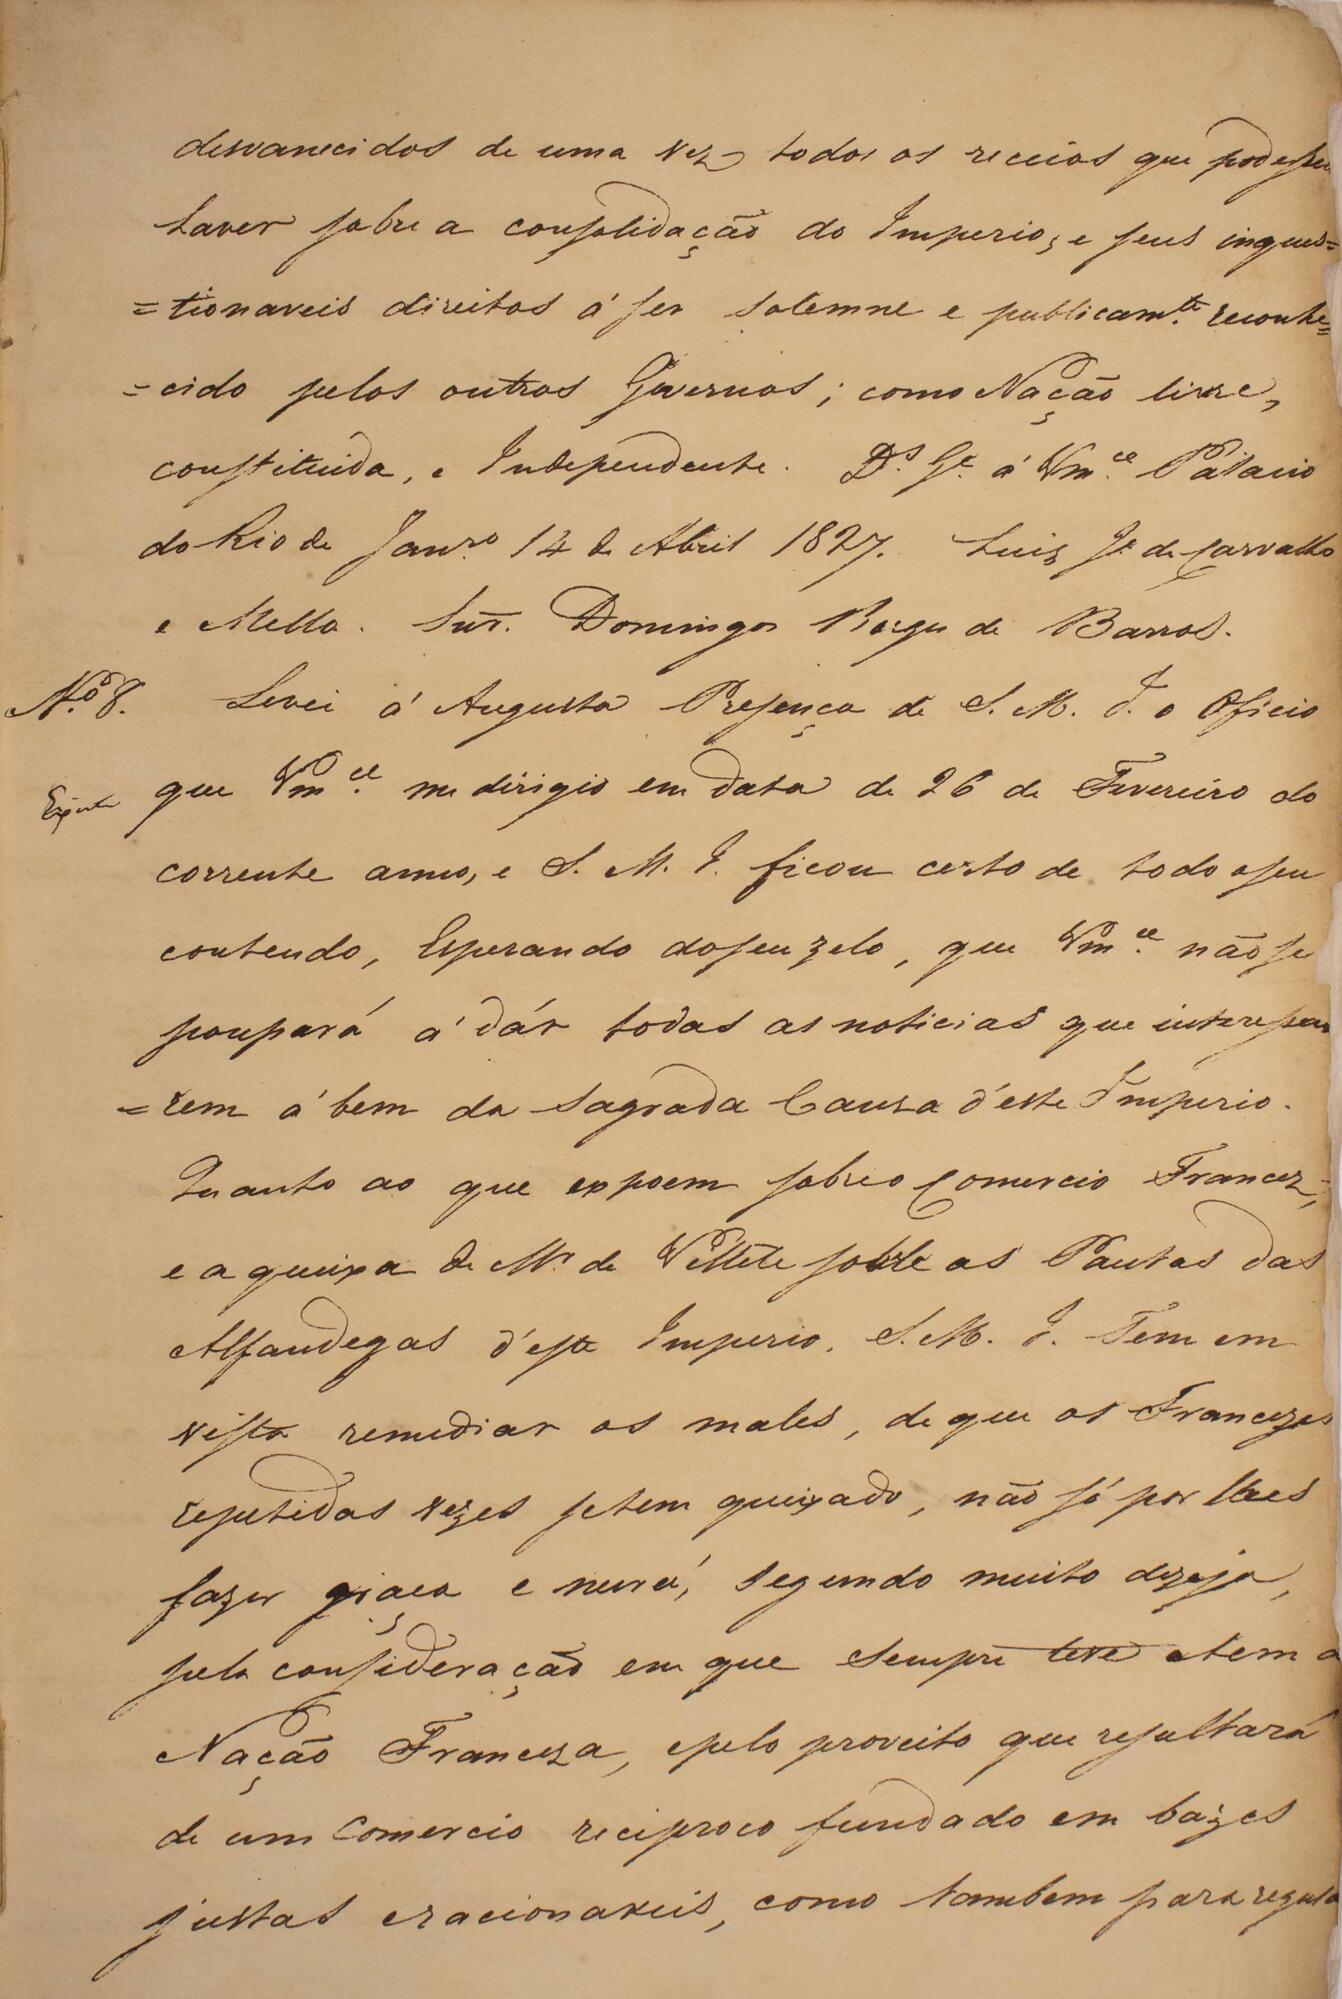 desvanecidos de uma vez todos os receios que podessem
haver sobre a consolidação do Imperio, e seus inques=
=tionaveis direitos á ser solemne e publicam.te reconhe=
=cido pelos outros Governos; como Nação livre,
constituida, e Independente. D.s G.e á Vm.ce Palacio
do Rio de Jan.ro 14 de Abril 1827. Luiz J.e de Carvalho
e Mello. Snr. Domingos Borges de Barros.
N.o 8. Levei á Augusta Presença de S. M. I. o Oficio
que Vm.ce me dirigio em data de 26 de Fevereiro do
corrente anno, e S. M. I. ficou certo de todo o seu
contendo, Esperando do seu zelo, que Vm.ce não se
poupará á dár todas as noticias que interessa
=rem á bem da Sagrada Causa d'este Imperio.
Quanto ao que expoem sobre o Comercio Francez,
e a queixa de Mr. de Villéle sobre as Pautas das
Alfandegas d'este Imperio. S. M. I. Tem em
vista remediar os males, de que os Francezes
repetidas vezes se tem queixado, não só por lhes
fazer graça e mercê, segundo muito dezeja,
pela consideração em que sempre teve e tem a
Nação Franceza, e pelo proveito que resultará
de um Comercio reciproco fundado em bazes
justas e racionaveis, como tambem para regula